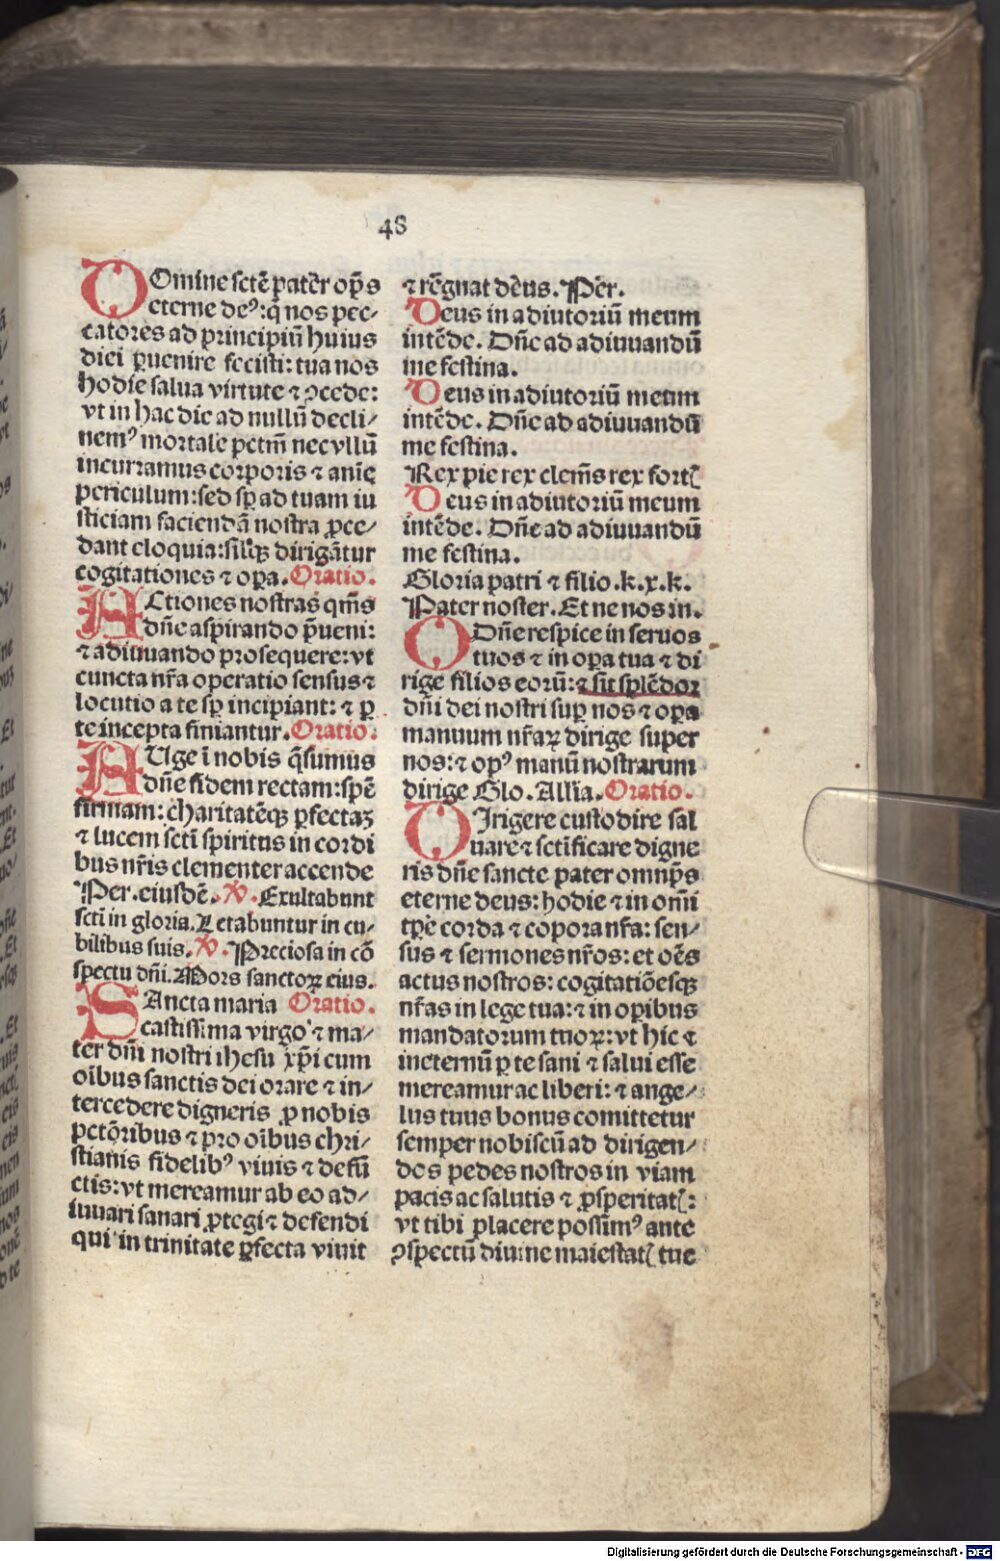 48
DOmine sctē pater op̄s
eterne deꝰ: q̇ nos pec-
catores ad principiū huius
diei ꝑuenire fecisti: tua nos
hodie salua virtute ⁊ ꝓcede:
vt in hac die ad nullū decli/
nemꝰ mortale pctm̄ nec vllū
incurramus corporis ⁊ anīe
periculum: sed sp̄ ad tuam iu
sticiam faciendā nostra ꝓce/
dant eloquia: silīqꝫ dirigātur
cogitationes ⁊ oꝑa. Oratio.
ACtiones nostras qm̄s
dn̄e aspirando p̄ueni:
⁊ adiuuando prosequere: vt
cuncta nr̄a operatio sensus ⁊
locutio a te sp̄ incipiant: ⁊ ꝑ
te incepta finiantur. Oratio.
AUge ī nobis q̄sumus
dn̄e fidem rectam: spē
firmam: charitatēqꝫ ꝑfectaꝫ
⁊ lucem scti spiritus in cordi
bus nr̄is clementer accende
Per. eiusdē. ℣. Exultabunt
scti in gloria. Letabuntur in cu/
bilibus suis. ℣. Preciosa in cō
spectu dn̄i. Mors sanctoꝝ eius.
SAncta maria Oratio.
castissima virgo ⁊ ma/
ter dn̄i nostri ihesu xp̄i cum
oībus sanctis dei orare ⁊ in/
tercedere digneris ꝓ nobis
pctōribus ⁊ pro oībus chri/
stianis fidelibꝰ viuis ⁊ defū
ctis: vt mereamur ab eo ad/
iuuari sanari ꝓtegi ⁊ defendi
qui in trinitate ꝑfecta viuit
⁊ rēgnat dēus. Pēr.
Deus in adiutoriū meum
intēde. Dn̄e ad adiuuandū
me festina.
Deus in adiutoriū meum
intēde. Dn̄e ad adiuuandū
me festina.
Rex pie rex clem̄s rex fortꝭ
Deus in adiutoriū meum
intēde. Dn̄e ad adiuuandū
me festina.
Gloria patri ⁊ filio. k.x.k.
Pater noster. Et ne nos in.
ODn̄e respice in seruos
tuos ⁊ in oꝑa tua ⁊ di
rige filios eorū: ⁊ sit splēdor
dn̄i dei nostri suꝑ nos ⁊ oꝑa
manuum nr̄aꝝ dirige super
nos: ⁊ opꝰ manū nostrarum
dirige Glo. Allīa. Oratio.
DIrigere custodire sal
uare ⁊ sctificare digne
ris dn̄e sancte pater omnp̄s
eterne deus: hodie ⁊ in om̄i
tp̄e corda ⁊ copora nr̄a: sen/
sus ⁊ sermones nr̄os: et oēs
actus nostros: cogitatiōesqꝫ
nr̄as in lege tua: ⁊ in oꝑibus
mandatorum tuoꝝ: vt hic ⁊
ineternū ꝑ te sani ⁊ salui esse
mereamur ac liberi: ⁊ ange/
lus tuus bonus comittetur
semper nobiscū ad dirigen/
dos pedes nostros in viam
pacis ac salutis ⁊ ꝓsperitatꝭ:
vt tibi placere possimꝰ ante
ꝯspectū diuine maiestatꝭ tue
Digitalisierung gefördert durch die Deutsche Forschungsgemeinschaft - DFG